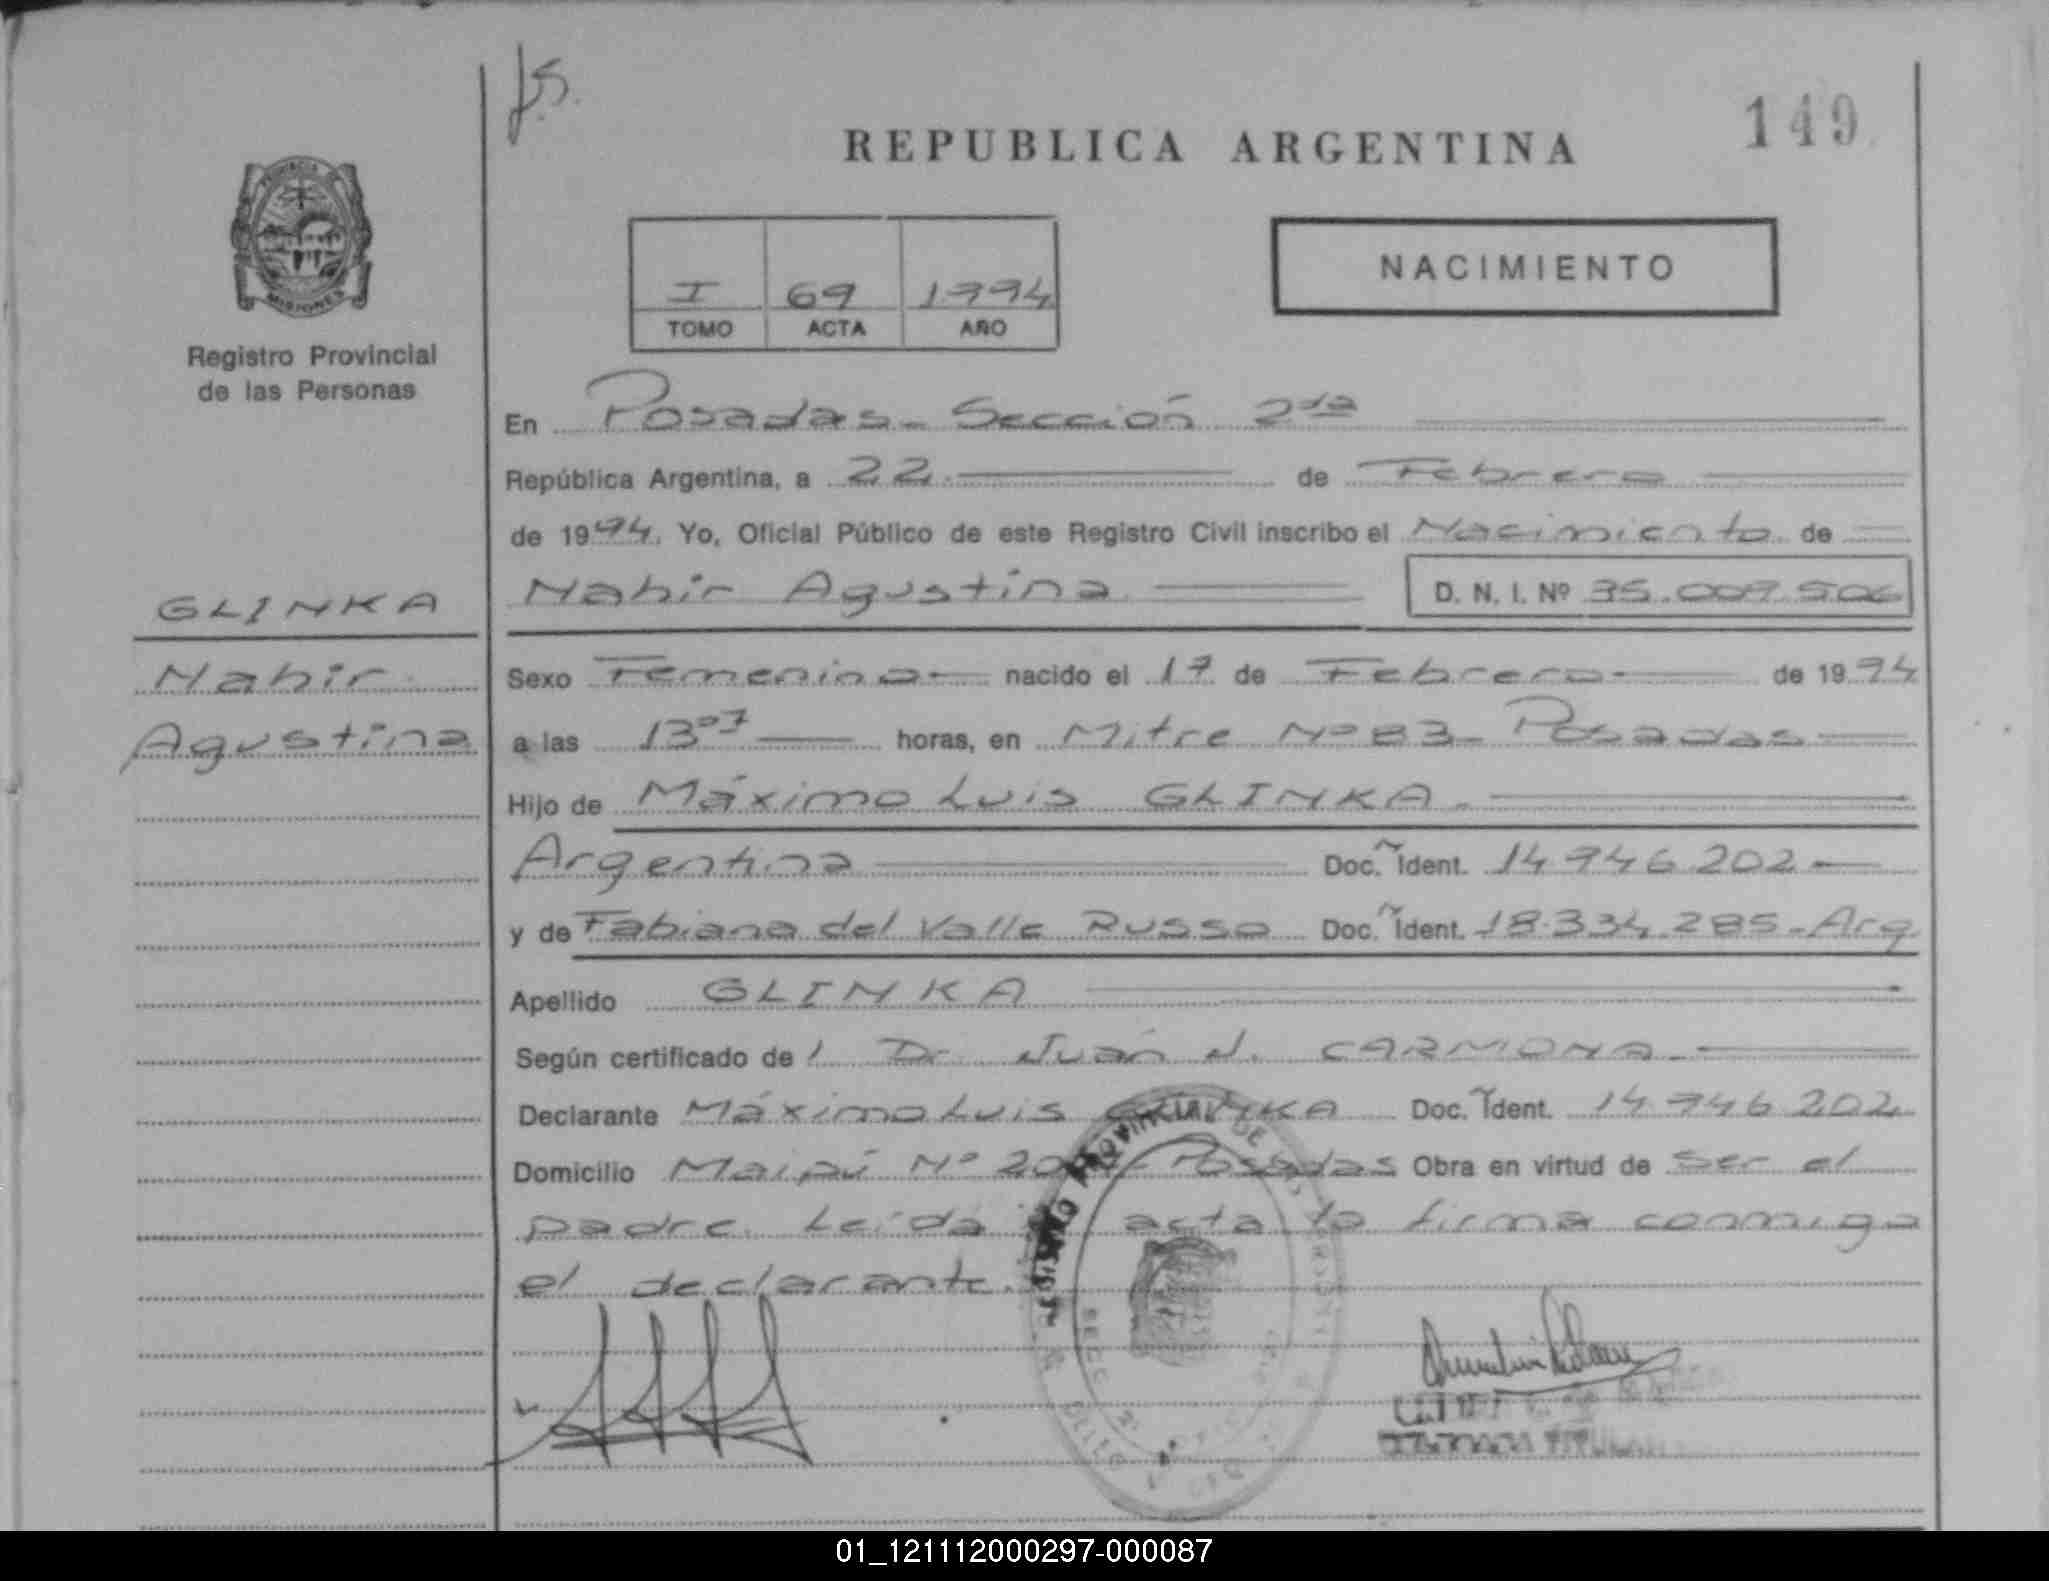 149
REPUBLICA ARGENTINA
PROVINCIA DE
MISIONES
Registro Provincial
de las Personas
I 69 1994
TOMO ACTA AÑO
NACIMIENTO
En Posadas - Sección 2da
República Argentina, a 22 de Febrero
de 1994. Yo, Oficial Público de este Registro Civil inscribo el Nacimiento de
Nahir Agustina D. N. I. Nº 35.009.506
GLINKA
Nahir
Agustina
Sexo Femenino nacido el 17 de Febrero de 1994
a las 13 07 horas, en Mitre Nº 83 - Posadas
Hijo de Máximo Luis GLINKA.
Argentina Doc. Ident. 14946202
y de Fabiana del Valle Russo Doc. Ident. 18.334.285 - Arg
Apellido GLINKA
Según certificado de l Dr Juan J. CARMONA
Declarante Máximo Luis GLINKA Doc. Ident. 14946202
Domicilio Maipú Nº - Posadas Obra en virtud de ser el
padre. Leída acta la firma conmigo
el declarante.
01_121112000297-000087